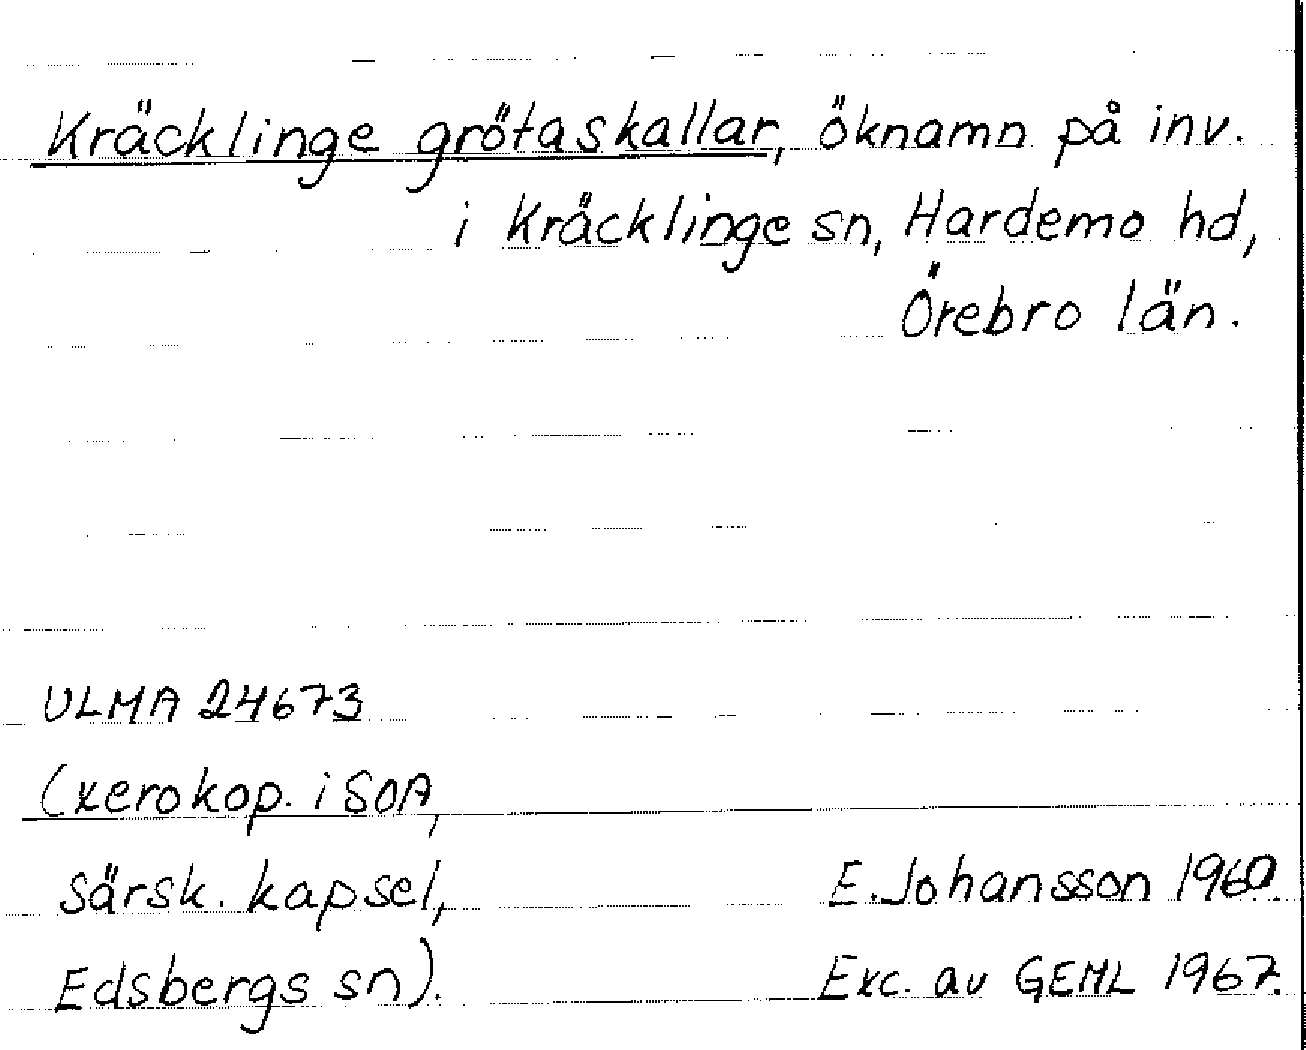 Kräcklinge grötaskallar, öknamn på inv.
i Kräcklinge sn, Hardemo hd,
Örebro län.
ULMA 24673
(xerokop. i SOA,
särsk. kapsel,
Edsbergs sn).
E. Johansson 1960.
Exc. av GEML 1967.